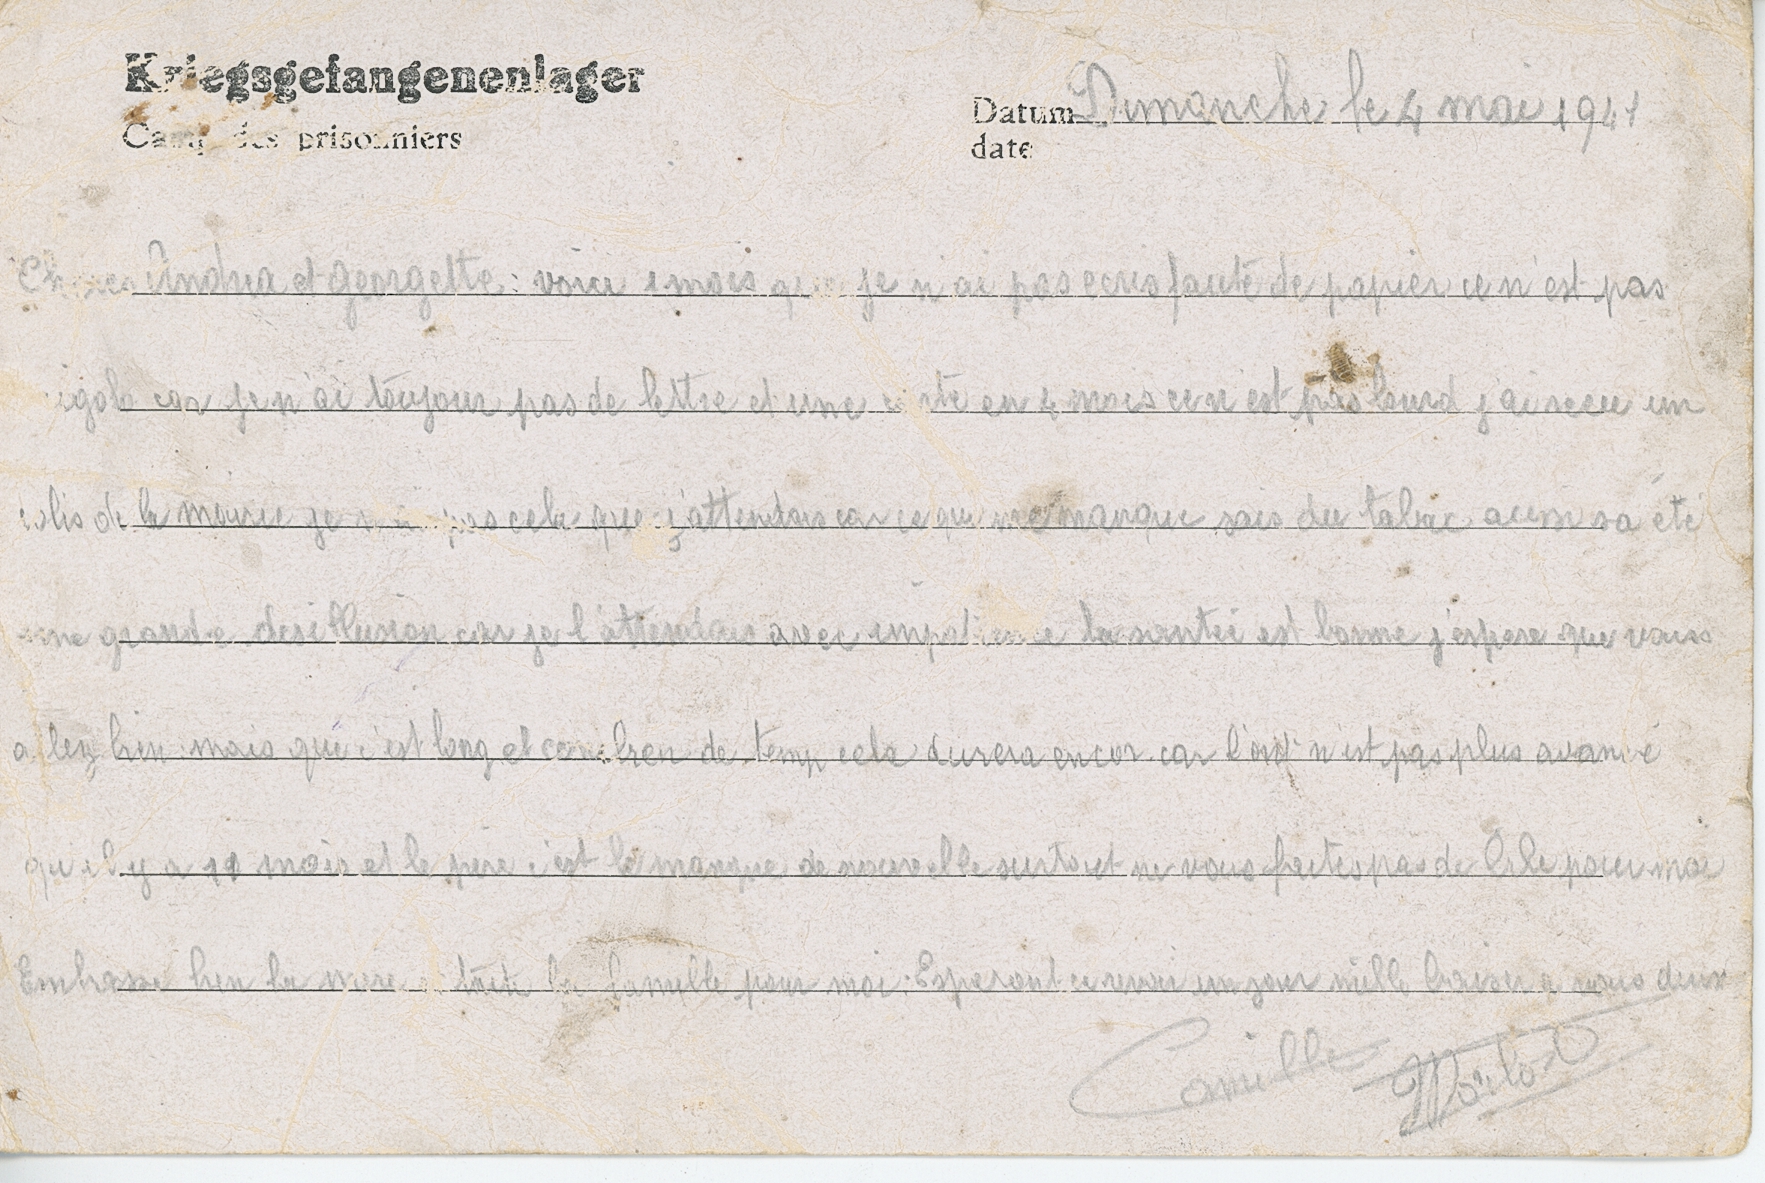 Kriegsgefangenenlager
Camp des prisonniers
Datum Dimanche le 4 mai 1941
date
Cheres Andrea et georgette : voici 1 mois que je n'ai pas ecris faute de papier ce n'est pas
rigolo car je n'ai toujour pas de lettre et une carte en 4 mois ce n'est pas lourd j'ai recu un
colis de la mairie je pas cela que j'attendais car ce qui me manque sais du tabac aussi sa été
une grande desillusion car je l'attendais avec impatience la santée est bonne j'espere que vous
alez bien mais que c'est long et combien de temp cela durera encor car l'on n'est pas plus avancé
qu'il y a 11 mois et le pire c'est le manque de nouvelle surtout ne vous faites pas de bile pour moi
Embrasse bien la mere et toute la famille pour moi : Esperant ce revoir un jour mille baiser a vous deux
Camille